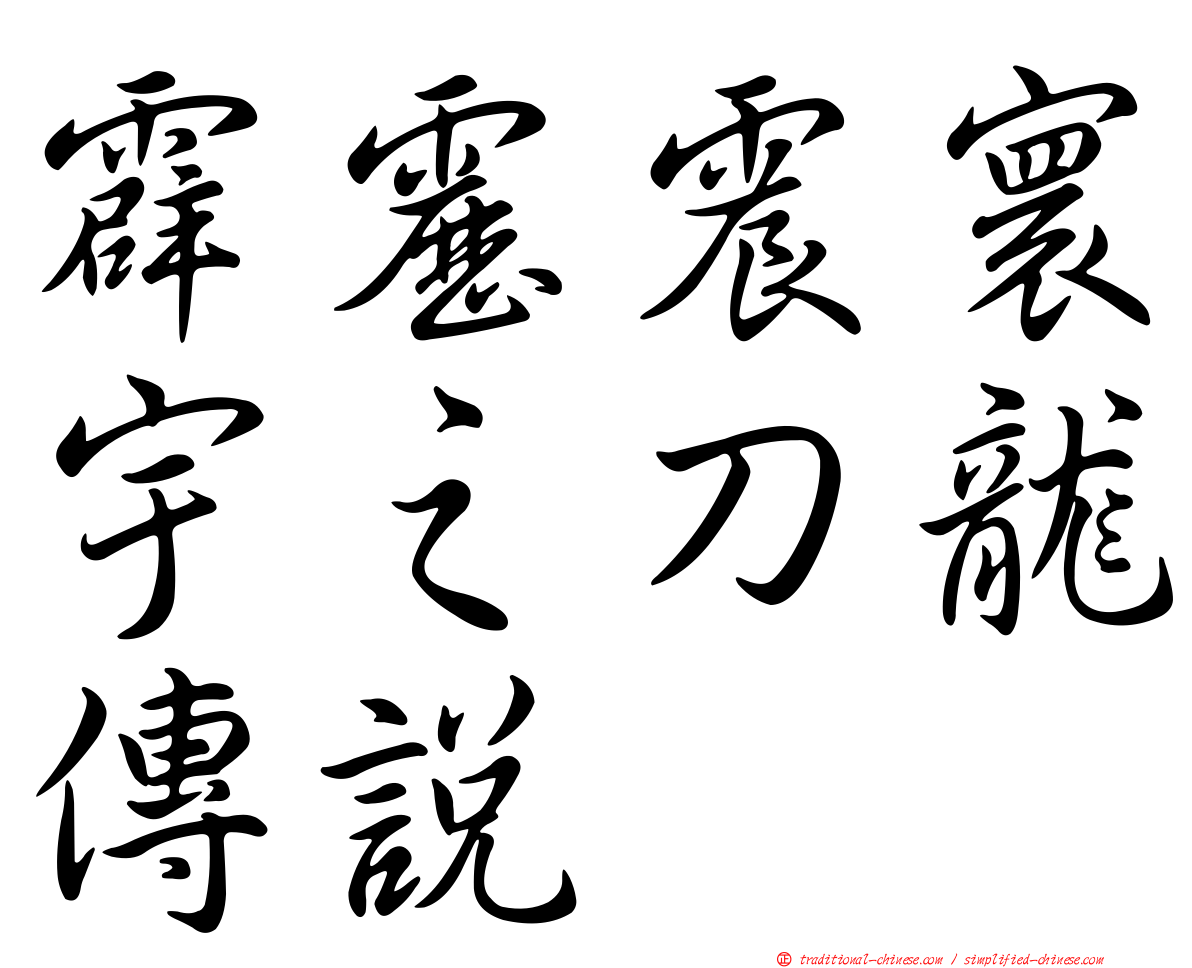 霹靂震寰
宇之刀龍
傳說
正 traditional-chinese.com / simplified-chinese.com